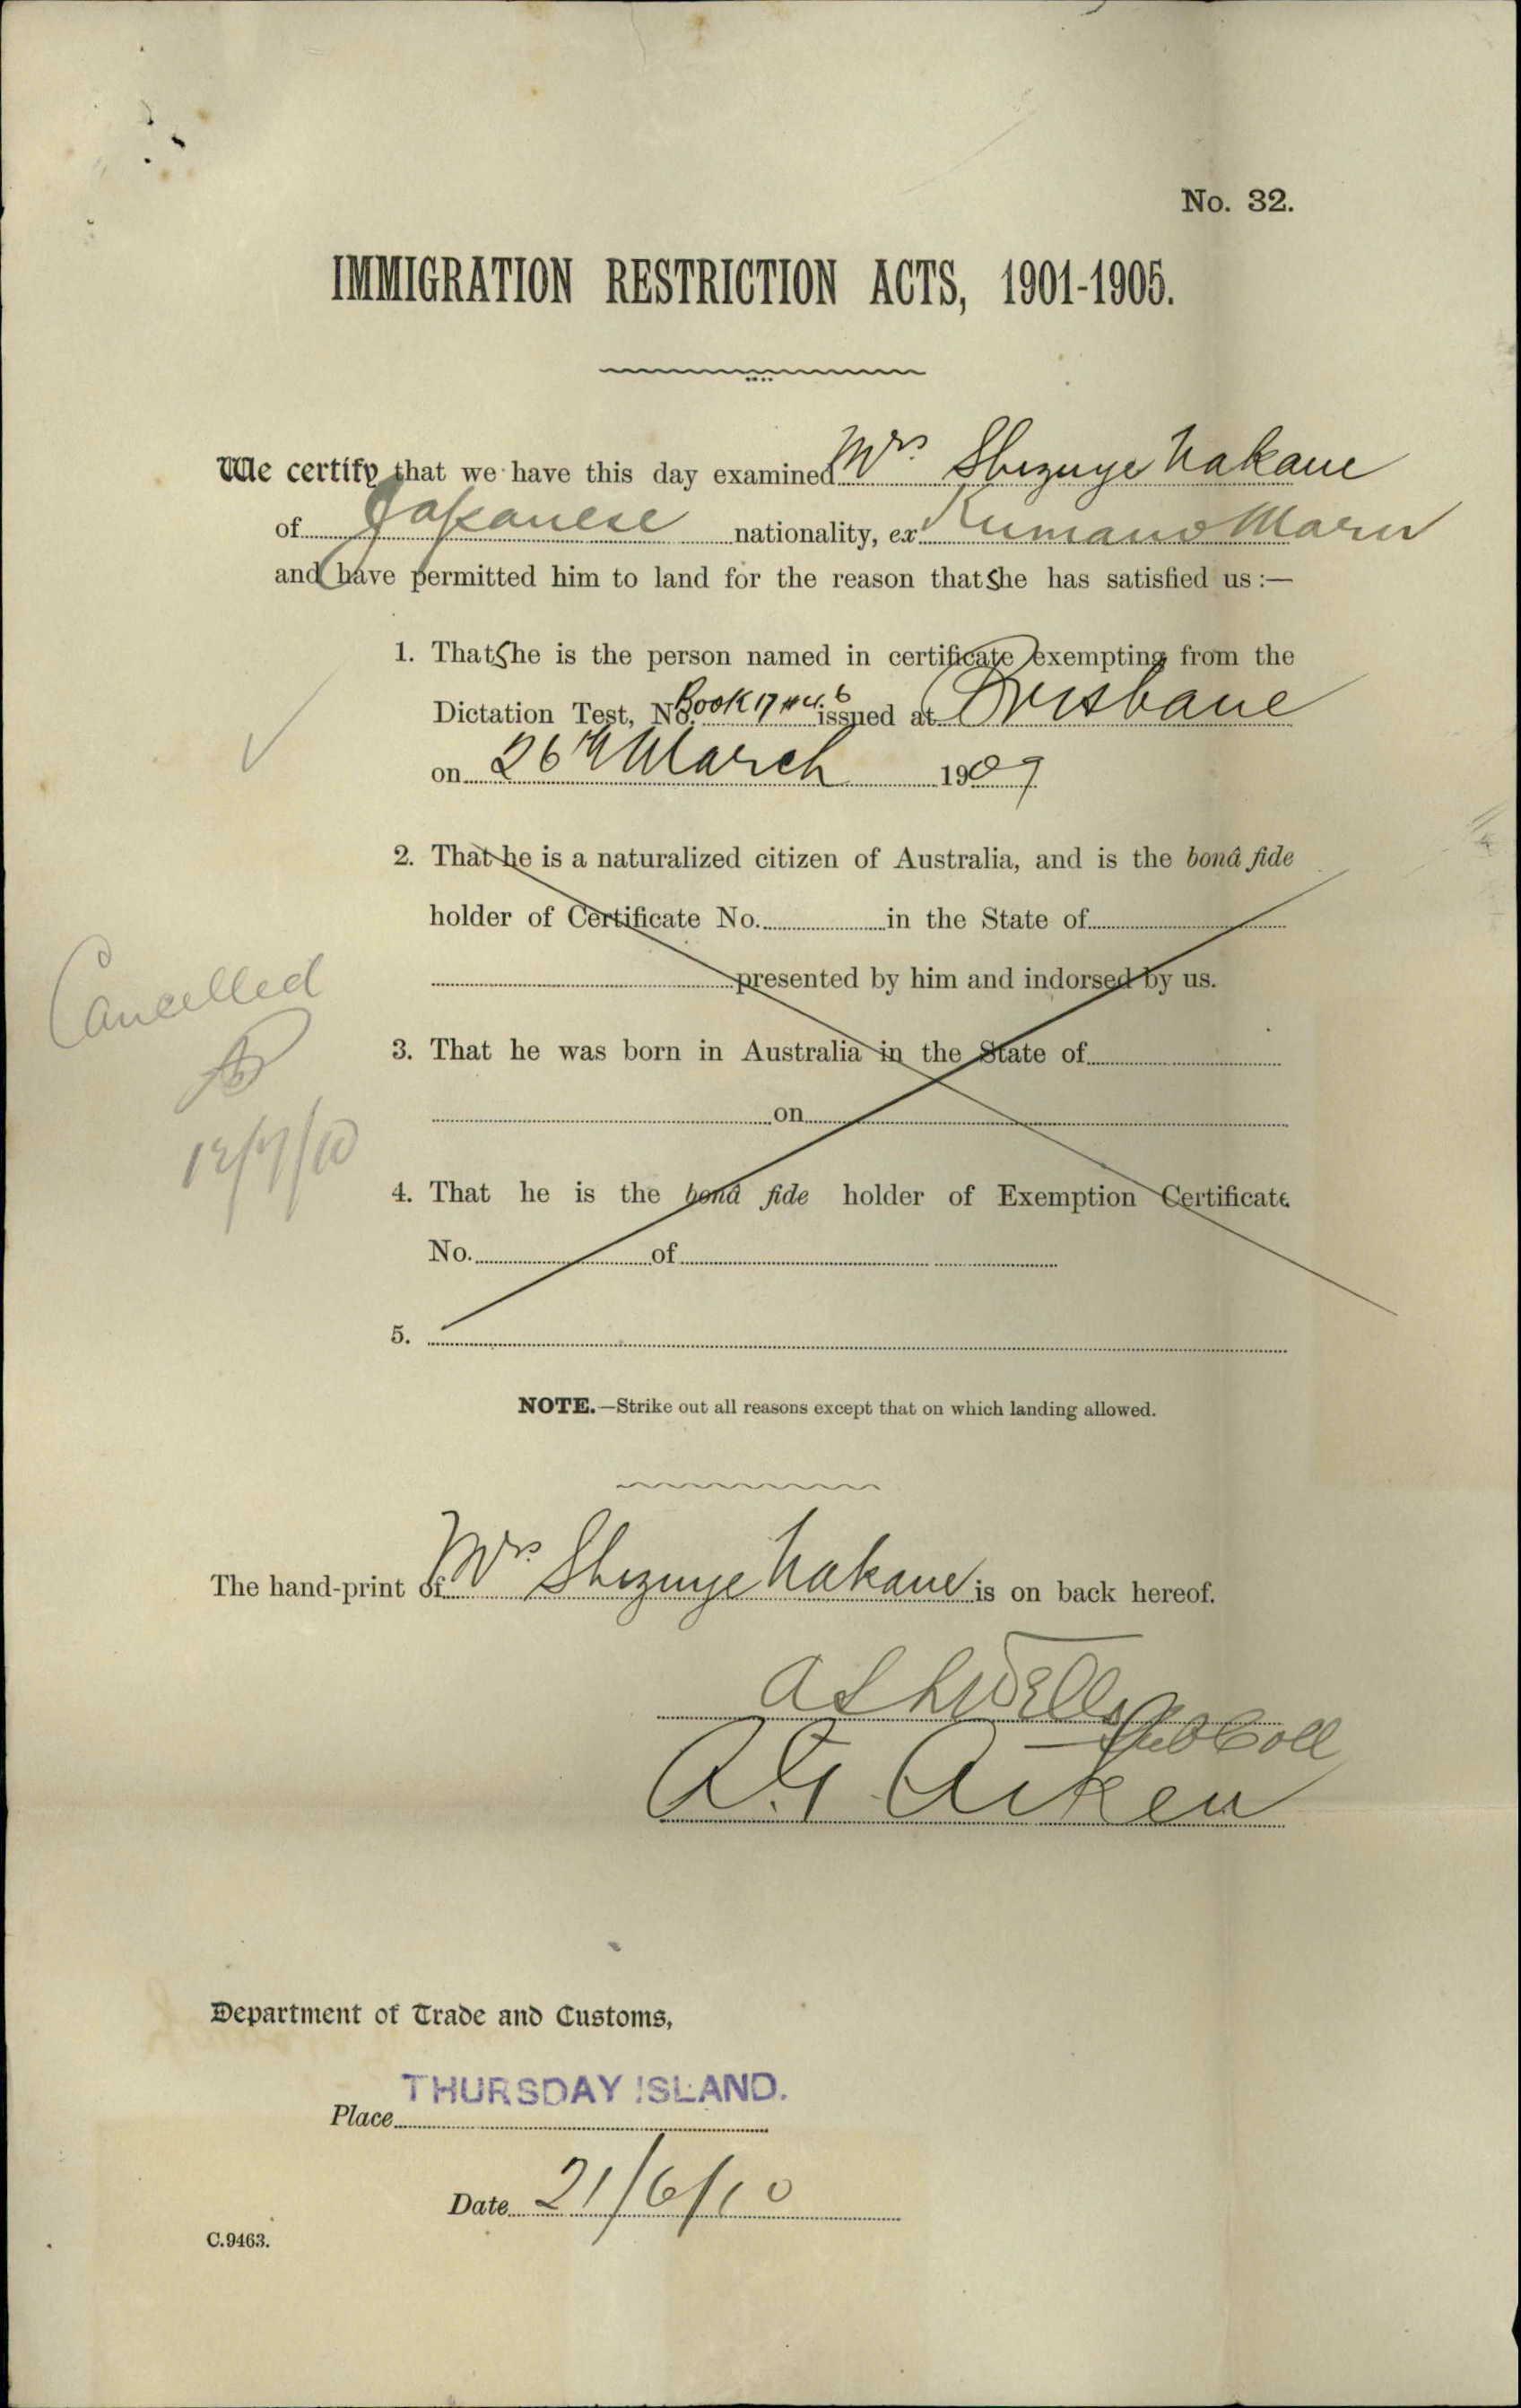 No. 32.
IMMIGRATION RESTRICTION ACTS, 1901-1905.
We certify that we have this day examined Mrs Shizuye Nakane
of Japanese nationality, ex Kumano Maru
and have permitted him to land for the reason that She has satisfied us :—
1. That She is the person named in certificate exempting from the
Dictation Test, No. Book 17 issued at Brisbane
on 26th March 1909
2. That he is a naturalized citizen of Australia, and is the bonâ fide
holder of Certificate No. in the State of
presented by him and indorsed by us.
Cancelled
12/7/10
3. That he was born in Australia in the State of
on
4. That he is the bonâ fide holder of Exemption Certificate
No. of
5.
NOTE.—Strike out all reasons except that on which landing allowed.
The hand-print of Mrs Shizuye Nakane is on back hereof.
Sub Coll
A.G. Aiken
Department of Trade and Customs,
THURSDAY ISLAND.
Place
Date 21/6/10
C.9463.